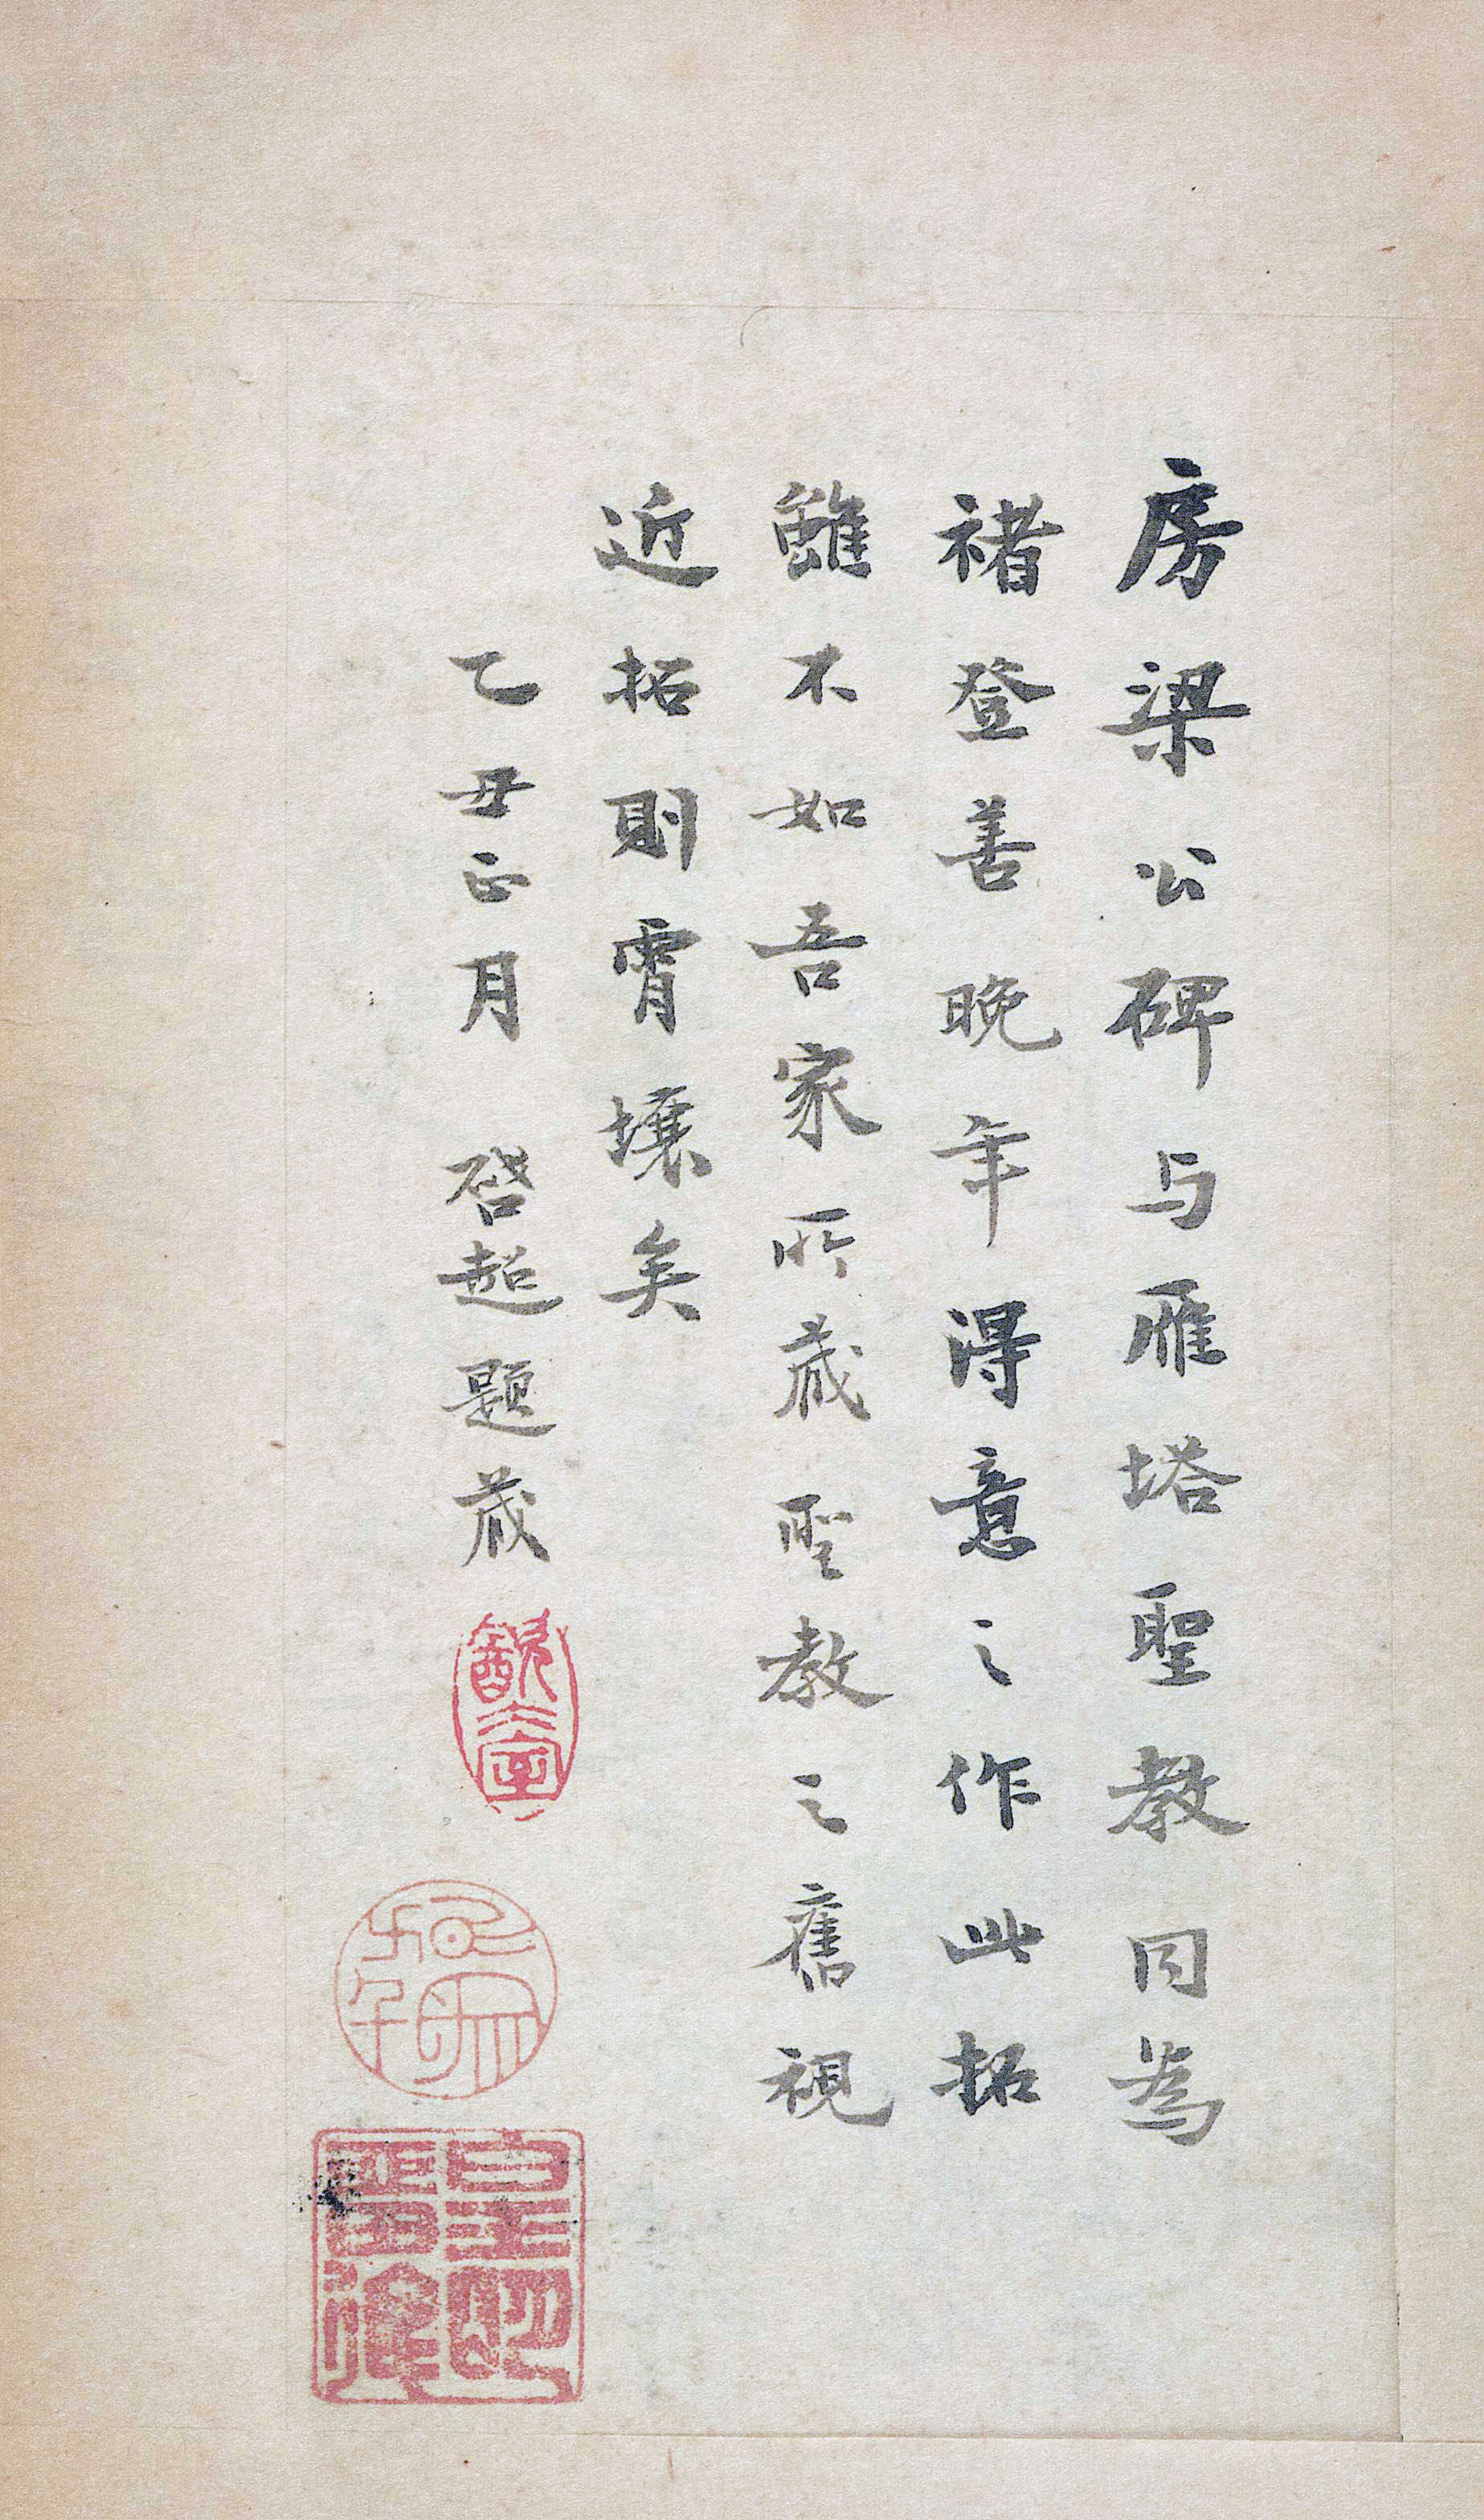 房梁公碑与雁塔聖教同為
褚登善晚年得意之作此拓
雖不如吾家所藏聖教之舊視
近拓則霄壤矣
乙丑正月 啓超題藏
飲冰室